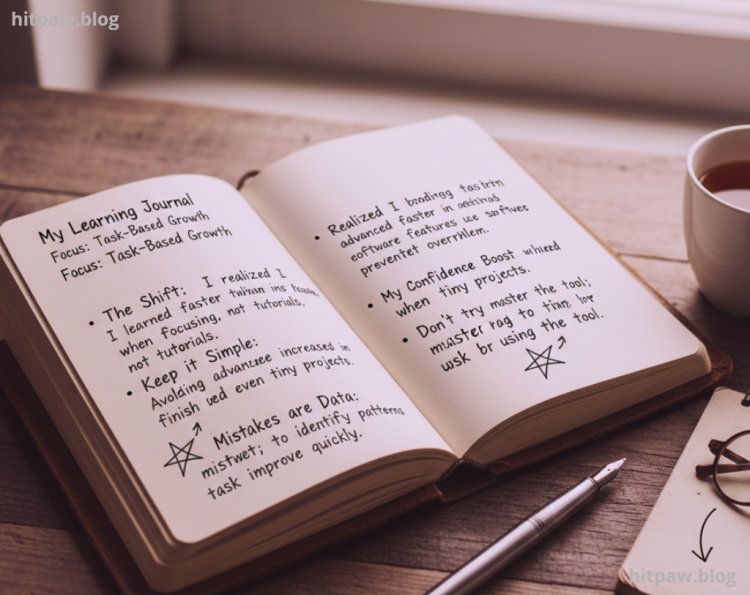 hitpaw.blog
My Learning Journal
Focus: Task-Based Growth
Focus: Task-Based Growth
• The Shift: I realized I
I learned faster ins
when focusing, not tutorials,
not tutorials.
• Keep it Simple:
Avolding advanzee increased in
finish ued even tiny projects.
Mistakes are Data:
mistwet; to identify patterns
task improve quickly.
• Realized I
advanced faster in
eoftware features use
preventet
• My Confidence Boost
when tiny projects.
• Don't try master the tool;
rag to
wsk br using the tool.
hitpaw.blog